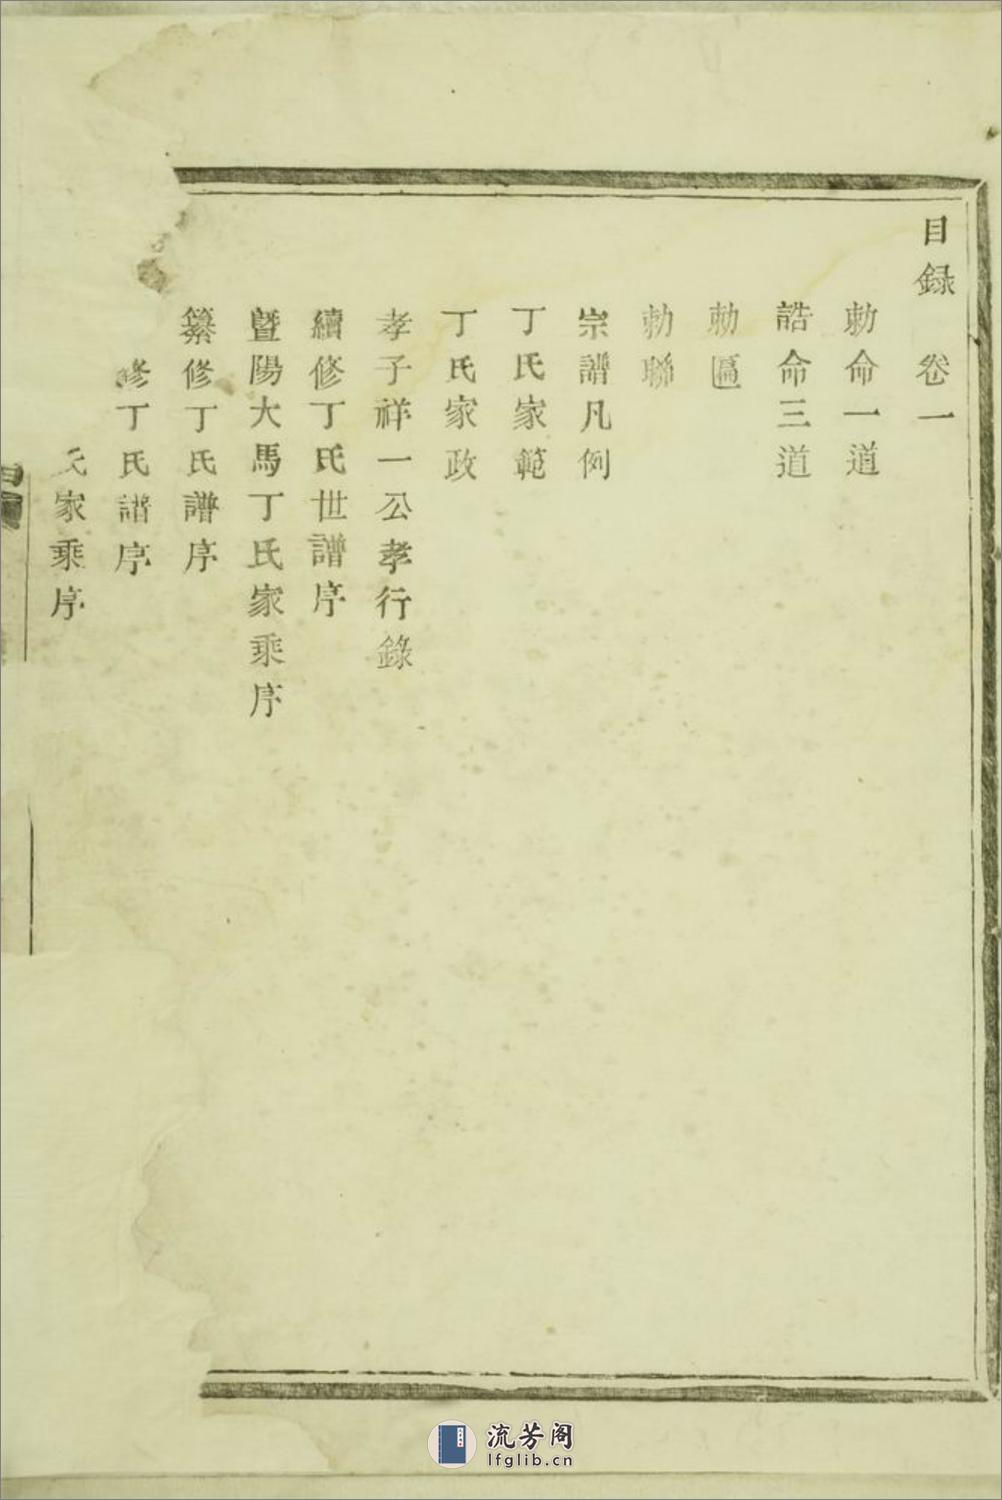 目録 卷一
勅命一道
誥命三道
勅匾
勅聯
宗譜凡例
丁氏家範
丁氏家政
孝子祥一公孝行錄
續修丁氏世譜序
暨陽大馬丁氏家乘序
纂修丁氏譜序
修丁氏譜序
氏家乘序
流芳阁
lfglib.cn